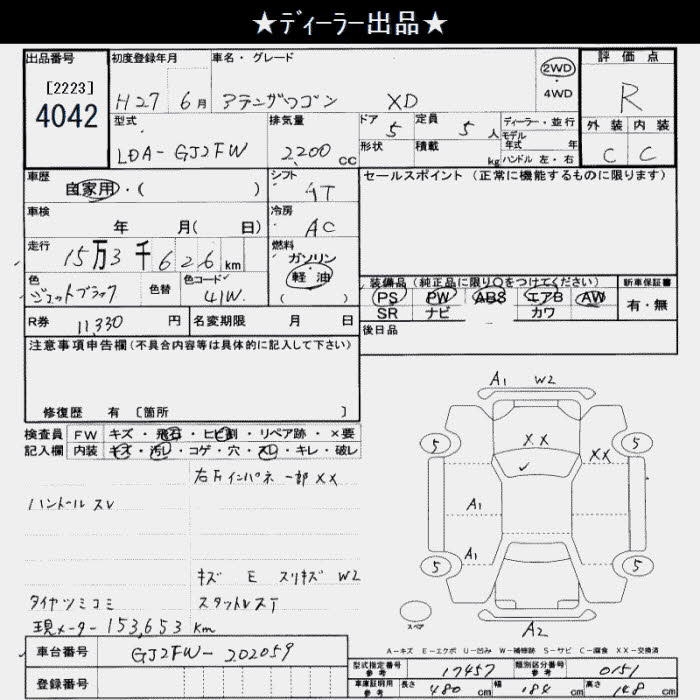 ★ディーラー出品★
出品番号
[2223]
4042
初度登録年月
H27 6月
車名・グレード
アテンザワゴン XD
2WD
・
4WD
評価点
R
型式
LDA-GJ2FW
排気量
2,200 cc
ドア
5
定員
5 人
形状
積載
kg
ディーラー・並行
モデル
年式 年
ハンドル 左・右
外装 内装
C C
車歴
自家用・( )
シフト
AT
セールスポイント(正常に機能するものに限ります)
車検
年 月( 日)
冷房
AC
走行
15万3千626km
燃料
ガソリン
・
軽油
( )
色
ジェットブラック
色替
色コード
41W
装備品(純正品に限り○をつけてください)
PS PW ABS エアB AW
SR ナビ カワ
新車保証書
有・無
R券 11,330 円
名変期限 月 日
後日品
注意事項申告欄(不具合内容等は具体的に記入して下さい)
修復歴 有 〔箇所 〕
検査員 FW キズ・飛石・ヒビ割・リペア跡・×要
記入欄 内装 キズ・汚レ・コゲ・穴・スレ・キレ・破レ
右Fインパネ一部××
ハンドルスレ
キズ E スリキズ W2
タイヤツミコミ スタットレスT
現メーター153,653km
車台番号 GJ2FW-202059
登録番号
A1 W2
5 5
XX
XX
✓
A1
A1
5 5
スペア
A2
A-キズ E-エクボ U-凹み W-補修跡 S-サビ C-腐食 XX-交換済
型式指定番号
参考
17457
類別区分番号
参考
0151
車庫証明用
参考
長さ 480 cm
幅 184 cm
高さ 148 cm